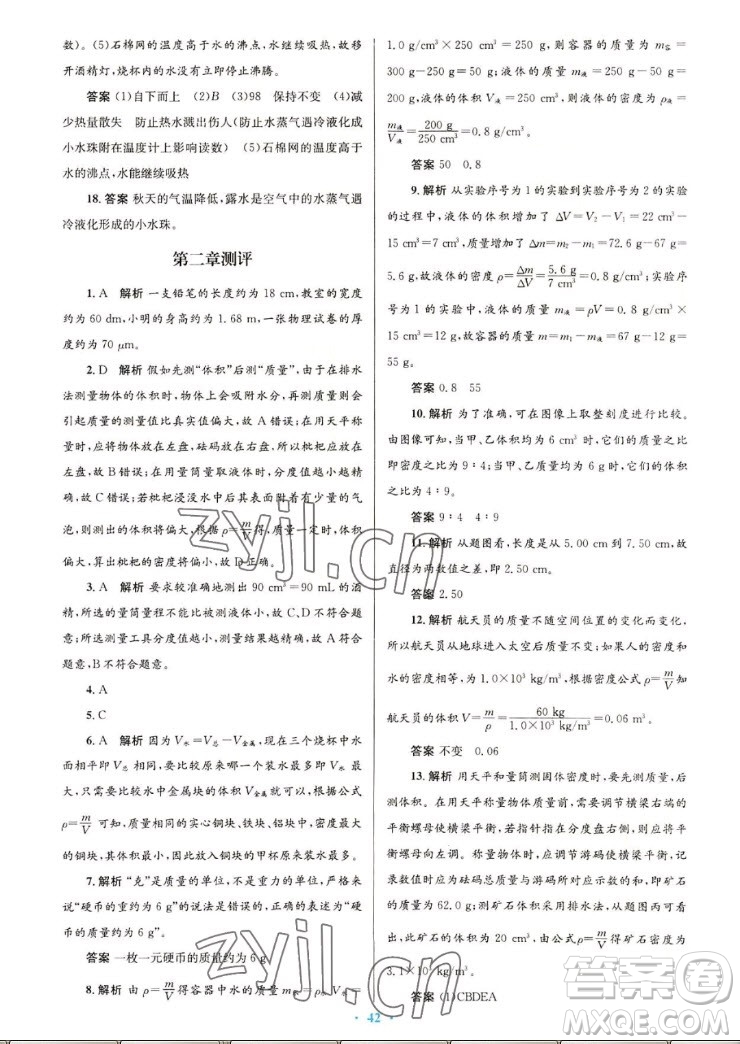 数)。(5)石棉网的温度高于水的沸点,水继续吸热,故移
开酒精灯,烧杯内的水没有立即停止沸腾。
答案 (1)自下而上 (2)B (3)98 保持不变 (4)减
少热量散失 防止热水溅出伤人(防止水蒸气遇冷液化成
小水珠附在温度计上影响读数) (5)石棉网的温度高于
水的沸点,水能继续吸热
18. 答案 秋天的气温降低,露水是空气中的水蒸气遇
冷液化形成的小水珠。
第二章测评
1. A 解析 一支铅笔的长度约为 18 cm,教室的宽度
约为 60 dm,小明的身高约为 1.68 m,一张物理试卷的厚
度约为 70 μm。
2. D 解析 假如先测“体积”后测“质量”,由于在排水
法测量物体的体积时,物体上会吸附水分,再测质量则会
引起质量的测量值比真实值偏大,故 A 错误;在用天平称
时,应将物体放在左盘,砝码放在右盘,所以枇杷应放在
左盘,故 B 错误;用量筒量取液体时,分度值越小越精
确,故 C 错误;若枇杷浸没水中后其表面附着少量的气
泡,测出的体积将偏大,根据 ρ=m/V得,质量一定时,体积
偏大,故枇杷的密度将偏小,故 D 正确。
3. A 解析 要求较准确地测出 90 cm³=90 mL的酒
精,所选的量筒量程不能比被测液体小,故 C、D 不符合题
意;所选测量工具分度值越小,测量结果越精确,故 A 符合
题意,B 不符合题意。
4. A
5. C
6. A 解析 因为 V水=V总-V金属,现在三个烧杯中水
面相平,即 V总 相同,所以要比较水中金属块的体积,根据公式
ρ=m/V 可知,质量相等的实心铜块、铁块、铝块中,体积最小
的是铜块,所以放入铜块的甲杯原来装水最多。
7. 解析 “克”是质量的单位,不是重力的单位,严格来
说“硬币的重约为 6 g”的说法是错误的,正确的表述为“硬
币的质量约为 6 g”。
答案 一枚一元硬币的质量约为 6 g
8. 解析 由 ρ=m/V得容器中水的质量 m水=ρ水V水=
1.0 g/cm³×250 cm³=250 g,则容器的质量为 m容=
300 g-250 g=50 g;液体的质量 m液=250 g-50 g=
200 g,液体的体积 V液=250 cm³,则液体的密度为 ρ液=
m液/V液=200 g/250 cm³=0.8 g/cm³。
答案 50 0.8
9. 解析 从实验序号为 1 的实验到实验序号为 2 的实验
的过程中,液体的体积增加了 ΔV=V₂-V₁=22 cm³-
15 cm³=7 cm³,质量增加了 Δm=m₂-m₁=72.6 g-67 g=
5.6 g,故液体的密度 ρ=Δm/ΔV=5.6 g/7 cm³=0.8 g/cm³;实验序
号为 1 的实验中,液体的质量为 m液=ρV=0.8 g/cm³×
15 cm³=12 g,故容器的质量为 m=m₁-m液=67 g-12 g=
55 g。
答案 0.8 55
10. 解析 为了准确,可在图像上取整刻度进行比较。
由图像可知,当甲、乙体积均为 6 cm³时,它们的质量之比
即密度之比为 9∶4;当甲、乙质量均为 6 g 时,它们的体积
之比为 4∶9。
答案 9∶4 4∶9
11. 解析 从题图看,长度是从 5.00 cm 到 7.50 cm,故
直径为两数值之差,即 2.50 cm。
答案 2.50
12. 解析 航天员的质量不随空间位置的变化而变化,
所以航天员从地球进入太空后质量不变;如果人的密度和
水的密度相等,为 1.0×10³ kg/m³,根据密度公式 ρ=m/V知
航天员的体积 V=m/ρ=60 kg/1.0×10³ kg/m³=0.06 m³。
答案 不变 0.06
13. 解析 用天平和量筒测固体密度时,要先测质量,后
测体积。在用天平称量物体质量前,需要先调节横梁右端的
平衡螺母使横梁平衡,若指针指在分度盘右侧,则应将平
衡螺母向左调。称量物体质量时,应调节游码使横梁平衡,记
录数值时应为砝码总质量与游码所对应示数的和,即矿石
的质量为 62.0 g;测矿石体积采用排水法,从题图可以看
出,此矿石的体积为 20 cm³,则由 ρ=m/V得矿石密度为
3.1×10³ kg/m³。
答案 (1)CBDEA
· 42 ·
zyjl.cn
zyjl.cn
答案圈
MXQE.COM